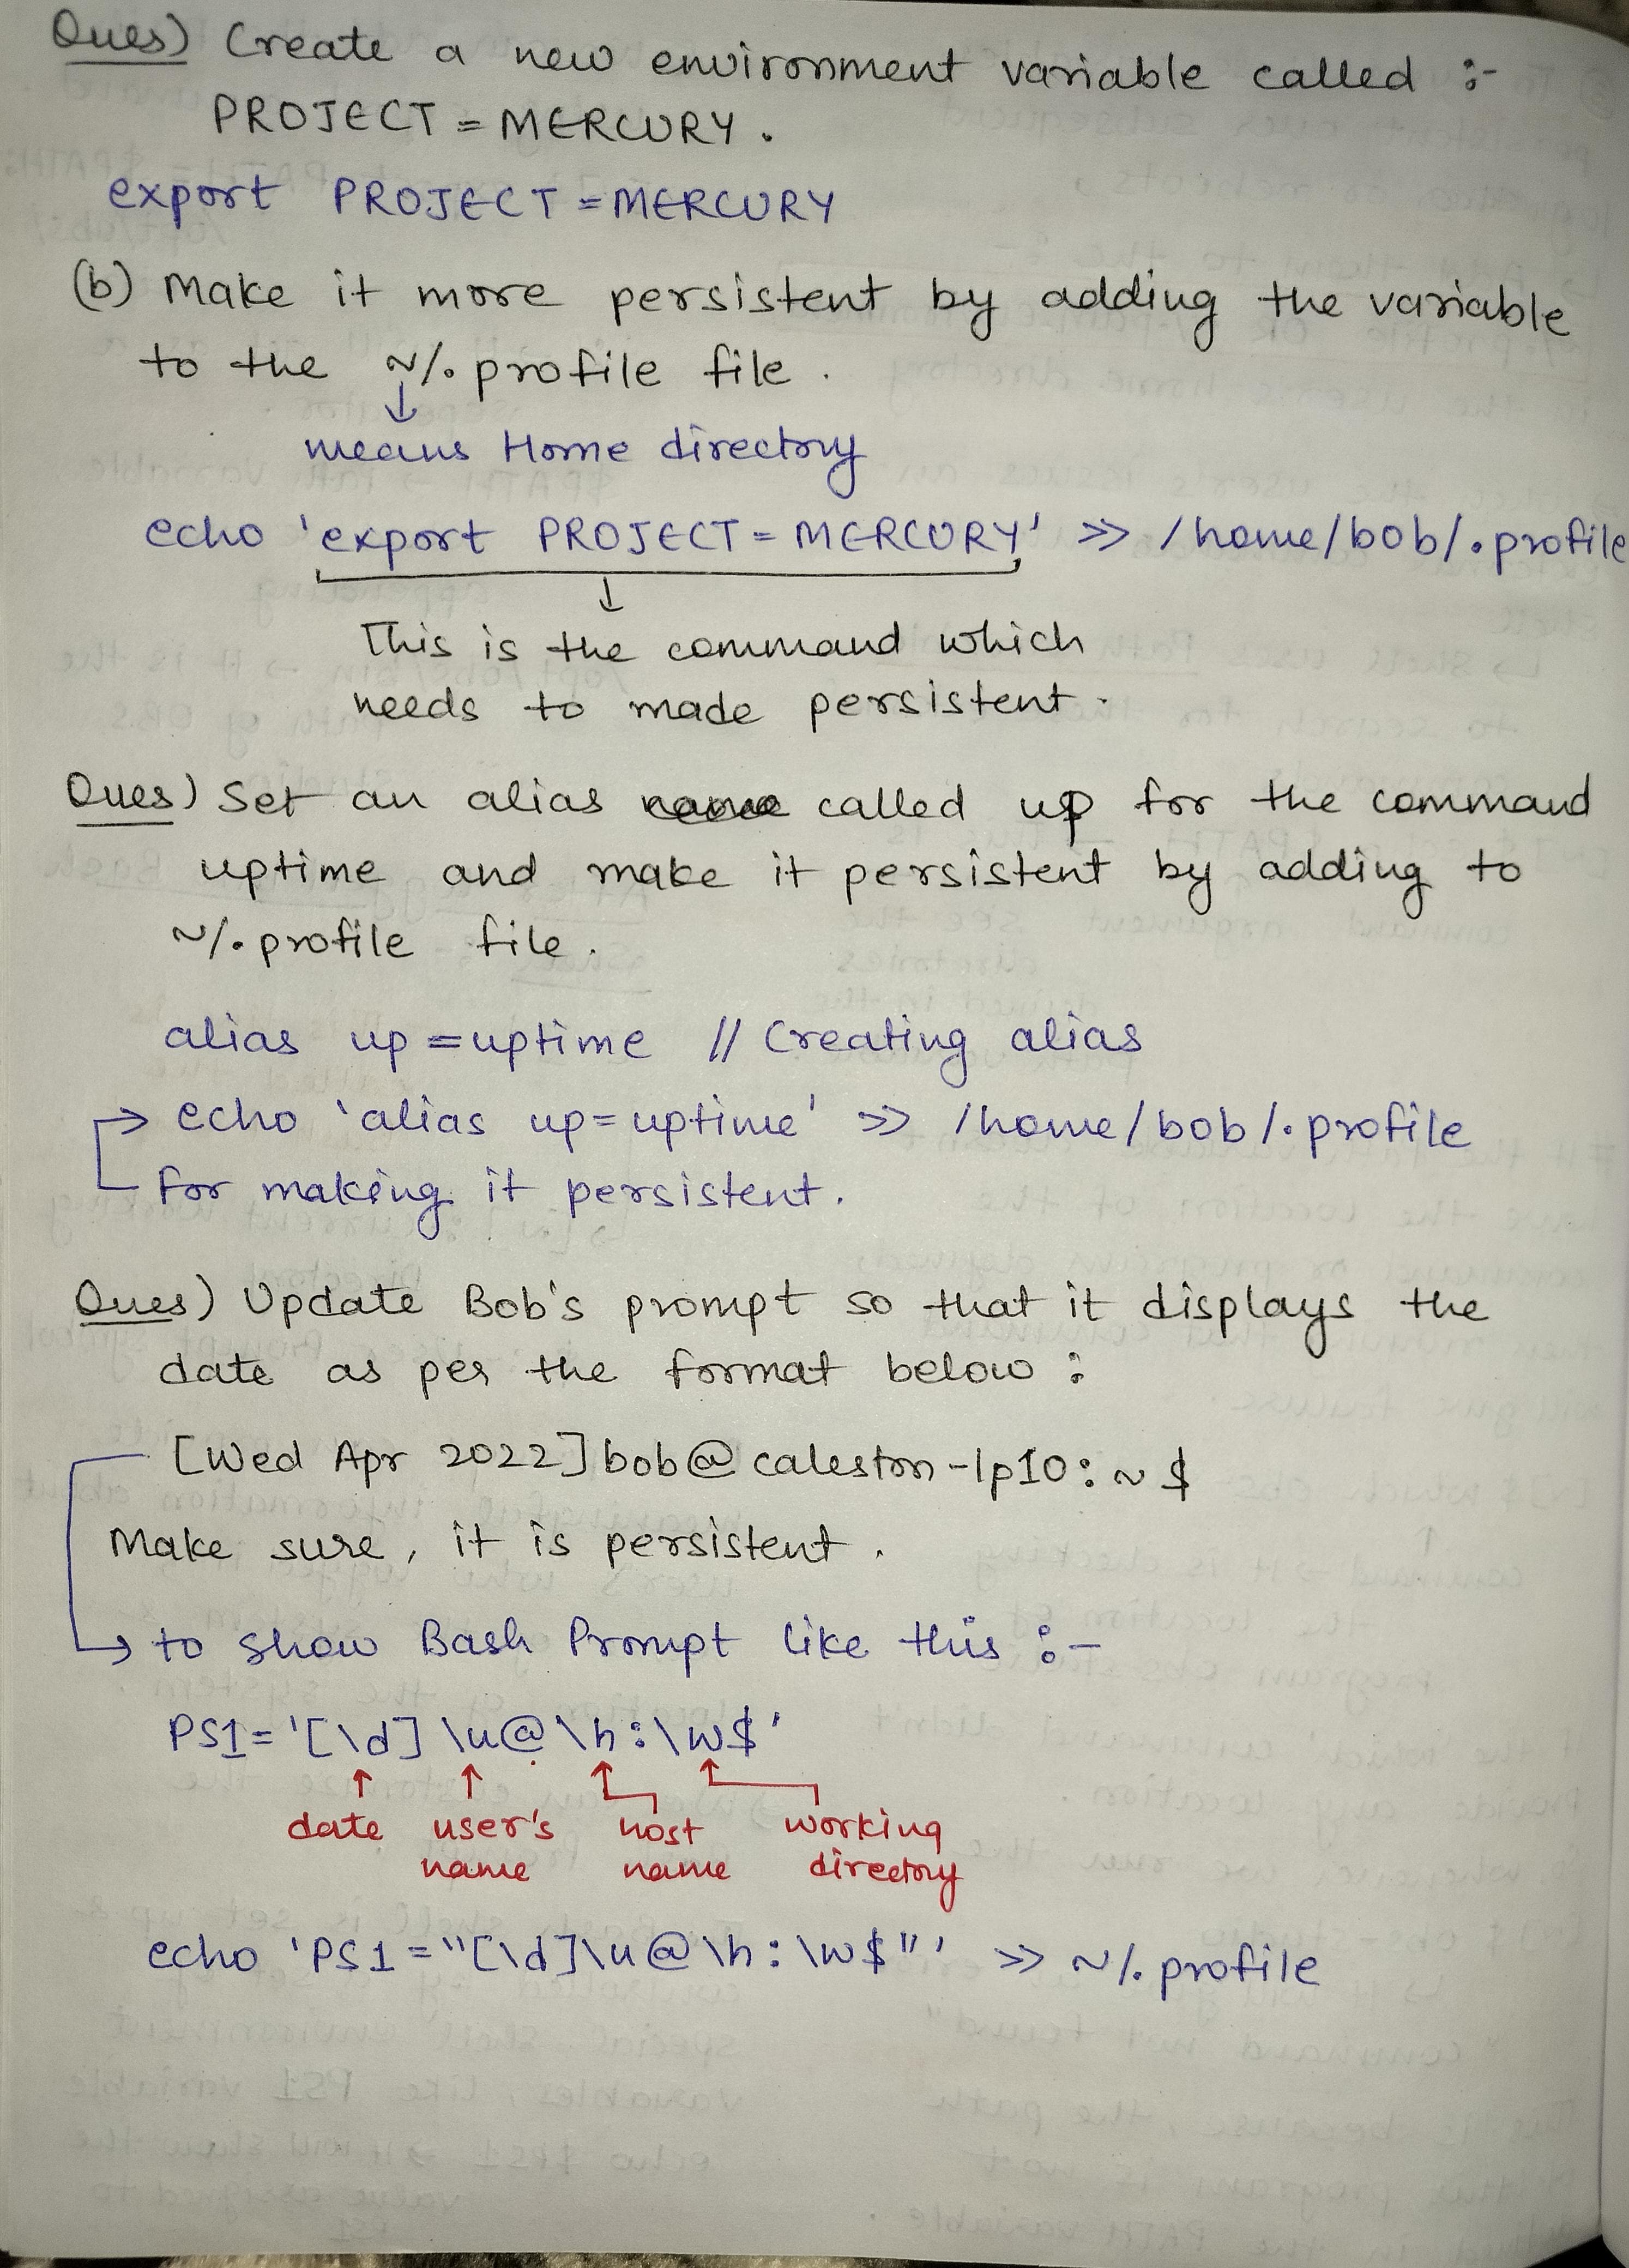 Ques) Create a new environment variable called :-
PROJECT = MERCURY.
export PROJECT = MERCURY
(b) Make it more persistent by adding the variable
to the ~/.profile file.
↓
means Home directory
echo 'export PROJECT = MERCURY' >> /home/bob/.profile
↓
This is the command which
needs to made persistent.
Ques) Set an alias called up for the command
uptime and make it persistent by adding to
~/.profile file.
alias up = uptime // Creating alias
→ echo 'alias up=uptime' >> /home/bob/.profile
for making it persistent.
Ques) Update Bob's prompt so that it displays the
date as per the format below :
[Wed Apr 2022]bob@caleston-lp10:~$
Make sure, it is persistent.
→ to show Bash Prompt like this :-
PS1='[\d]\u@\h:\w$'
↑ ↑ ↑ ↑
date user's host working
name name directory
echo 'PS1="[\d]\u@\h:\w$"' >> ~/.profile